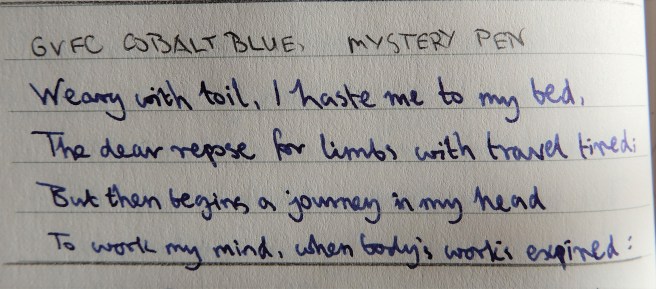 GVFC COBALT BLUE, MYSTERY PEN
Weary with toil, I haste me to my bed,
The dear repose for limbs with travel tired;
But then begins a journey in my head
To work my mind, when body's work's expired: